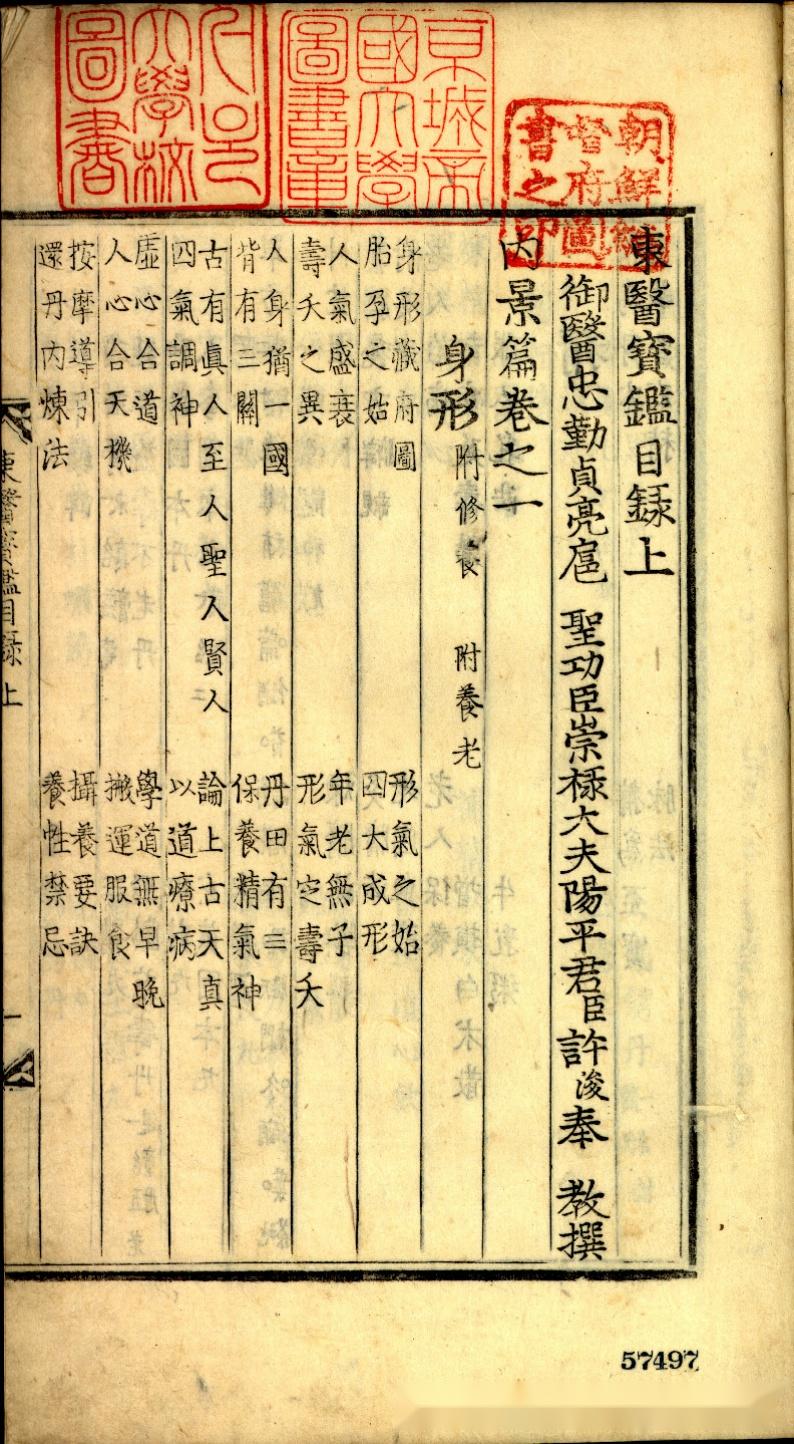 朝鮮總
督府圖
書之印
京城帝
國大學
圖書章
서울
大學校
圖書
東醫寶鑑目録上
御醫忠勤貞亮扈 聖功臣崇祿大夫陽平君臣許浚奉 教撰
内景篇卷之一
身形 附修養 附養老
身形藏府圖 形氣之始
胎孕之始 四大成形
人氣盛衰 年老無子
壽夭之異 形氣㝎壽夭
人身猶一國 丹田有三
背有三關 保養精氣神
古有眞人至人聖人賢人 論上古天真
四氣調神 以道療病
虛心合道 學道無早晚
人心合天機 搬運服食
按摩導引 攝養要訣
還丹内煉法 養性禁忌
東醫寶鑑目録上 一
57497